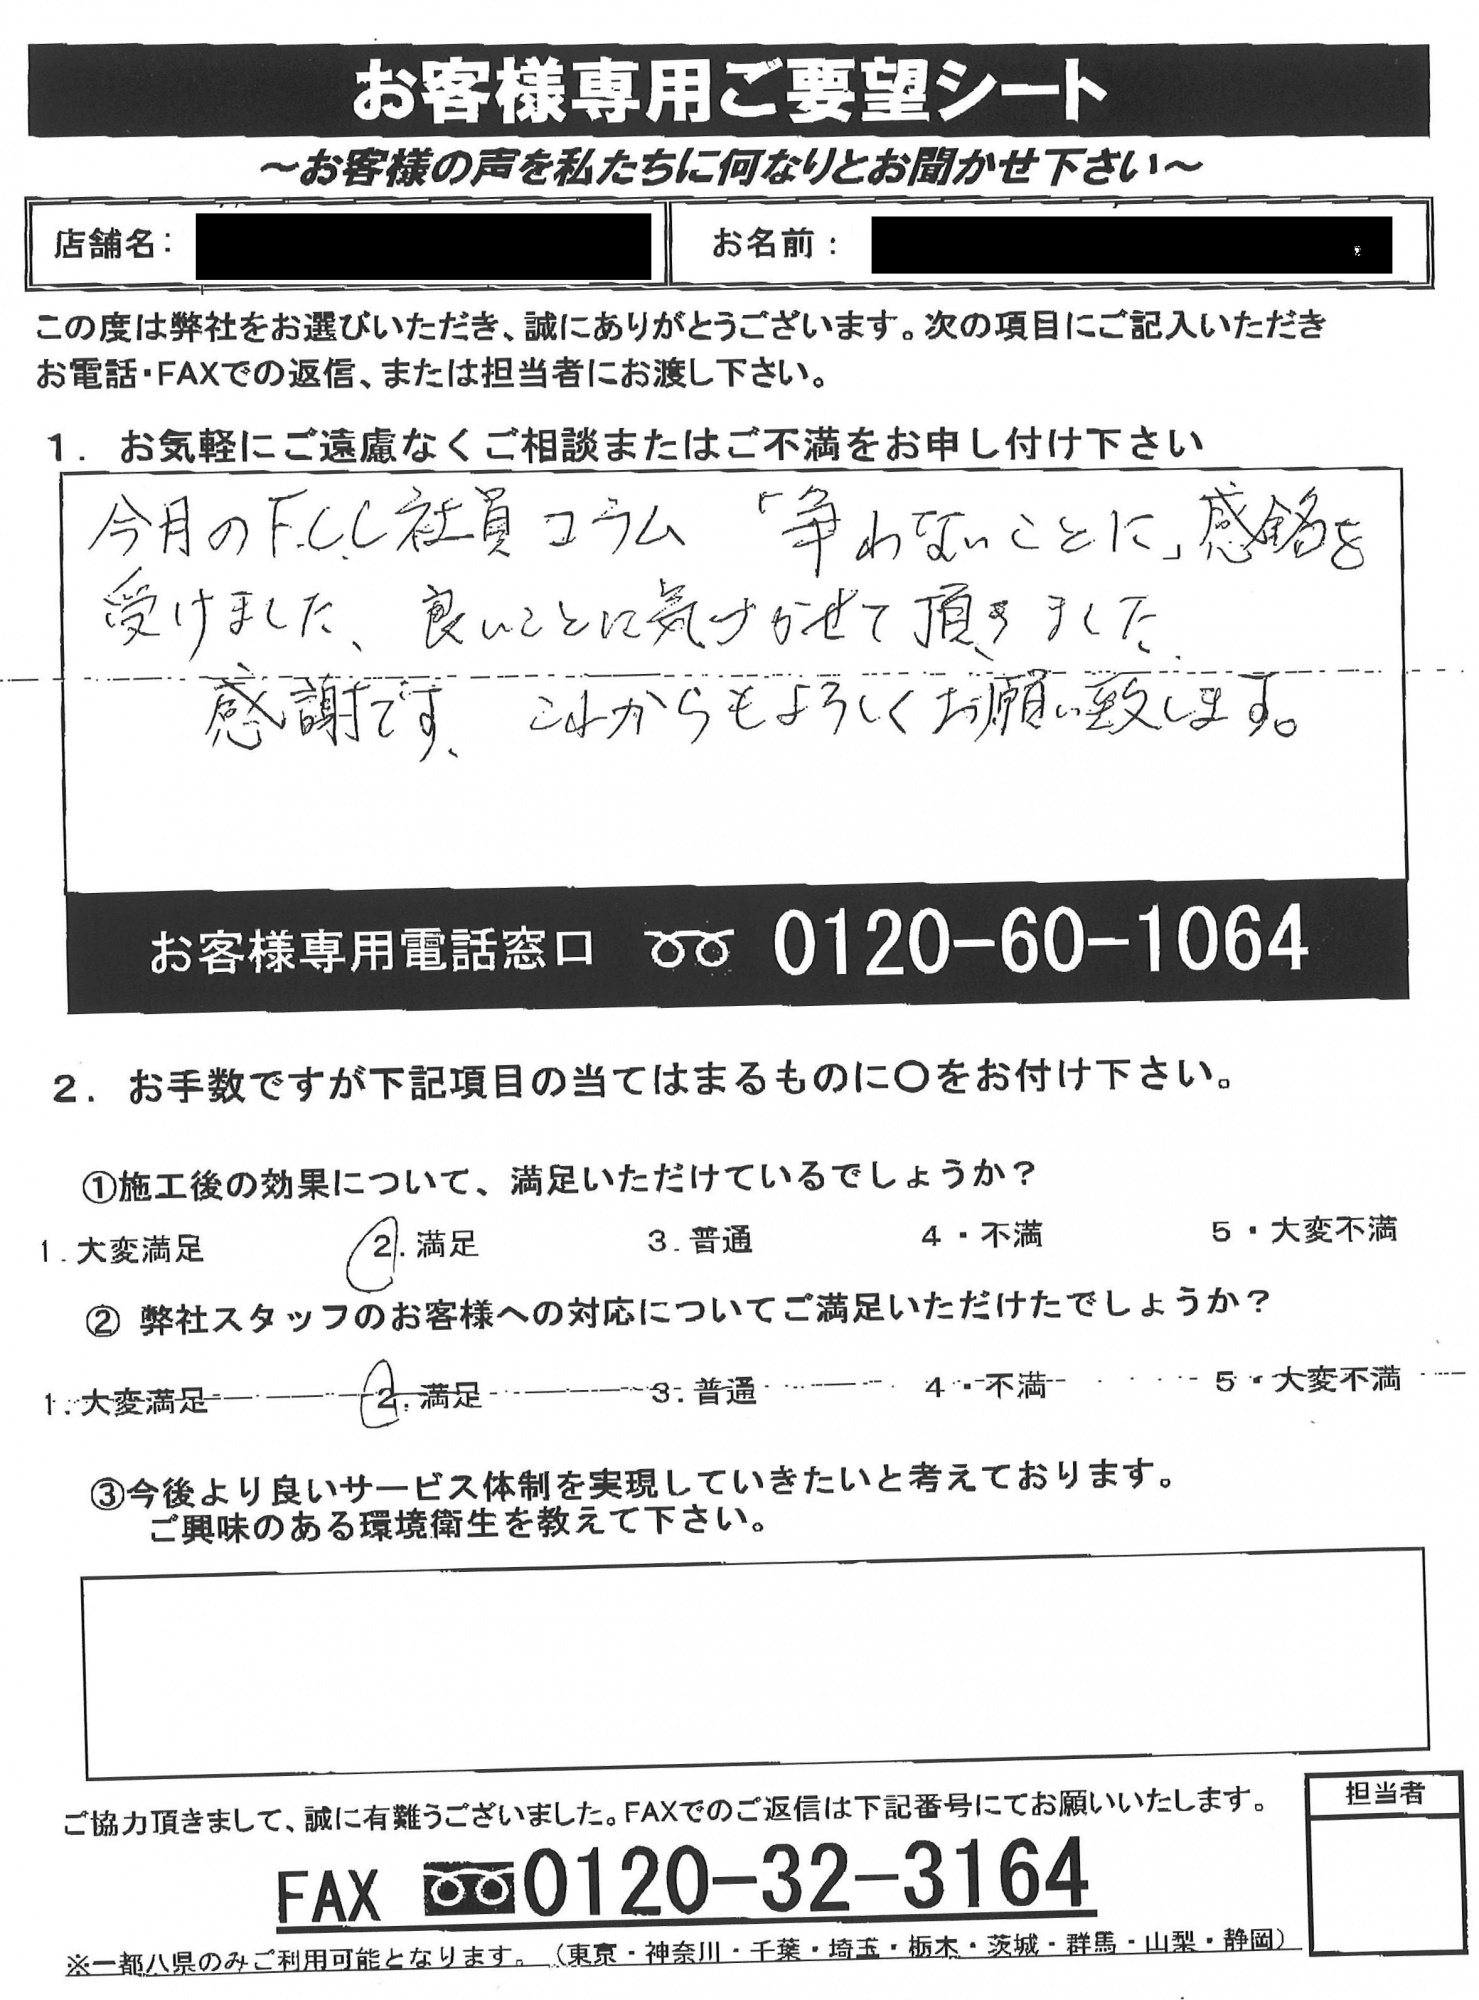 お客様専用ご要望シート
～お客様の声を私たちに何なりとお聞かせ下さい～
店舗名：
お名前：
この度は弊社をお選びいただき、誠にありがとうございます。次の項目にご記入いただき
お電話・FAXでの返信、または担当者にお渡し下さい。
１．お気軽にご遠慮なくご相談またはご不満をお申し付け下さい
今月のF.C.C社員コラム 「争わないことに」感銘を
受けました、良いことに気づかせて頂きました.
感謝です、これからもよろしくお願い致します。
お客様専用電話窓口 0120-60-1064
２．お手数ですが下記項目の当てはまるものに〇をお付け下さい。
①施工後の効果について、満足いただけているでしょうか？
1．大変満足 2．満足 3．普通 4・不満 5・大変不満
② 弊社スタッフのお客様への対応についてご満足いただけたでしょうか？
1．大変満足 2．満足 3．普通 4・不満 5・大変不満
③今後より良いサービス体制を実現していきたいと考えております。
ご興味のある環境衛生を教えて下さい。
ご協力頂きまして、誠に有難うございました。FAXでのご返信は下記番号にてお願いいたします。
担当者
FAX 0120-32-3164
※一都八県のみご利用可能となります。（東京・神奈川・千葉・埼玉・栃木・茨城・群馬・山梨・静岡）